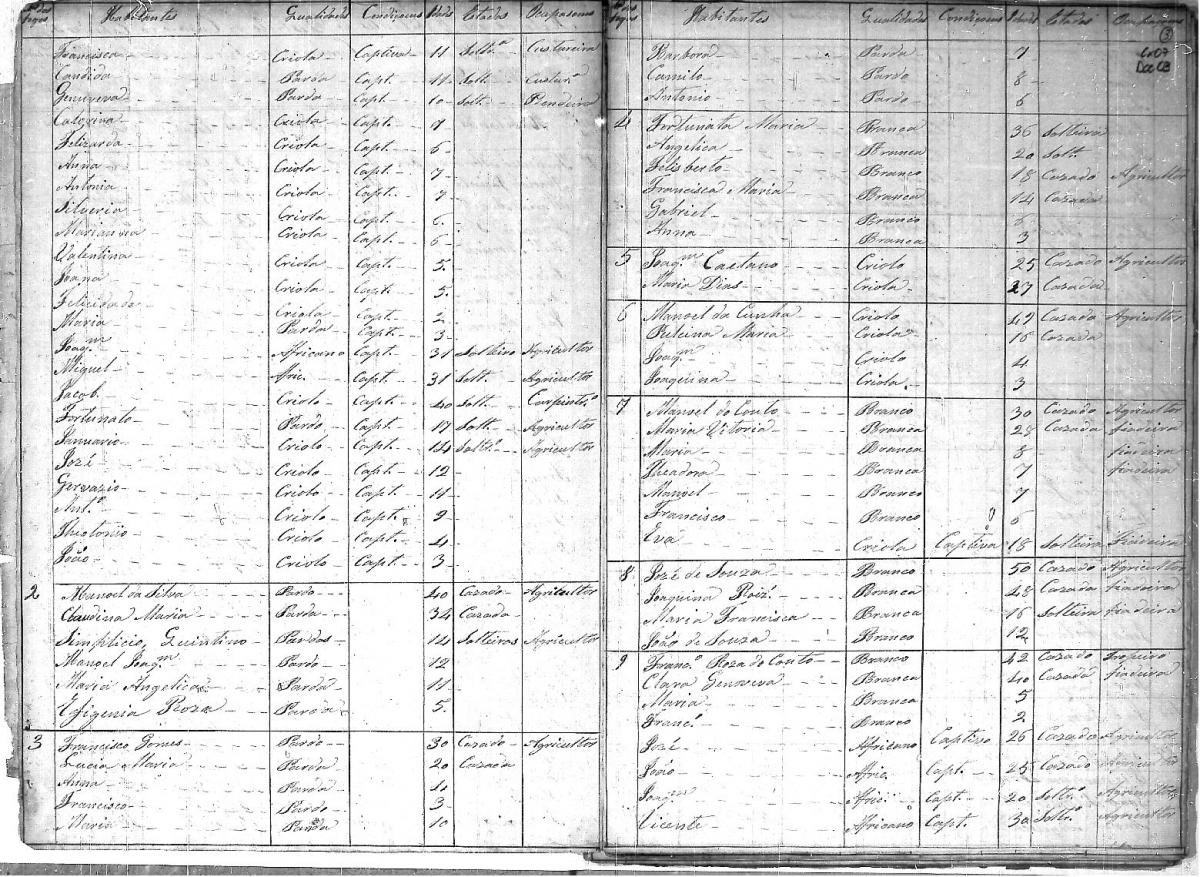 Fogos Habitantes Qualidades Condiçoens Idades Estados Ocupasoens
Francisca Criola Captiva 11 Soltª Custureira
Candida Parda Capt. 11 Solt. Custurª
Genuveva Parda Capt. 10 Solt. Rendeira
Caterina Criola Capt. 7
Felizarda Criola Capt. 6
Anna Criola Capt. 7
Antonia Criola Capt. 7
Silveria Criola Capt. 6
Marianna Criola Capt. 6
Valentina Criola Capt. 5
Joana Criola Capt. 5
Felicidade Criola Capt. 2
Maria Parda Capt. 3
Joaqm Africano Capt. 31 Solteiro Agricultor
Miguel Afric. Capt. 31 Solt. Agricultor
Jacob Criolo Capt. 40 Solt. Carpintrº
Fortunato Pardo Capt. 17 Solt. Agricultor
Januario Criolo Capt. 14 Soltº Agricultor
Jozé Criolo Capt. 12
Gervazio Criolo Capt. 11
Antº Criolo Capt. 9
Thiotonio Criolo Capt. 4
João Criolo Capt. 3
2 Manoel da Silva Pardo 40 Cazado Agricultor
Claudina Maria Parda 34 Cazada
Simplicio, Quintino Pardos 14 Solteiros Agricultor
Manoel Joaqm Pardo 12
Maria Angelica Parda 11
Efigenia Roza Parda 5
3 Francisco Gomes Pardo 30 Cazado Agricultor
Lucia Maria Parda 20 Cazada
Anna Parda 4
Francisco Pardo 3
Maria Parda 10
Fogos Habitantes Qualidades Condiçoens Idades Estados Ocupasoens
3
Cx07
Doc 03
Barbora Parda 7
Camilo Pardo 8
Antonio Pardo 6
4 Fortunata Maria Branca 36 Solteira
Angelica Branca 20 Solt.
Felisberto Branco 18 Cazado Agricultor
Francisca Maria Branca 14 Cazada
Gabriel Branco 5
Anna Branca 3
5 Joaqm Caetano Criolo 25 Cazado Agricultor
Maria Dias Criola 27 Cazada
6 Manoel da Cunha Criolo 42 Cazado Agricultor
Maria Criola 16 Cazada
Joaqm Criolo 4
Joaquina Criola 3
7 Manoel do Couto Branco 30 Cazado Agricultor
Maria Vitoria Branca 28 Cazada fiadeira
Maria Branca 8 fiadeira
Theadora Branca 7 fiadeira
Manoel Branco 7
Francisco Branco 6
Eva Criola Captiva 18 Solteira Fiadeira
8 Jozé de Souza Branco 50 Cazado Agricultor
Joaquina Roiz Branca 48 Cazada fiadeira
Maria Francisca Branca 16 Solteira fiadeira
João de Souza Branco 12
9 Francº Roza do Couto Branco 42 Cazado Tropeiro
Clara Genoveva Branca 40 Cazada fiadeira
Maria Branca 5
Francº Branco 2
Jozé Africano Captivo 26 Cazado Agricultor
João Afric. Capt. 25 Cazado Agricultor
Joaqm Afric. Capt. 20 Soltrº Agricultor
Vicente Africano Capt. 30 Soltrº Agricultor